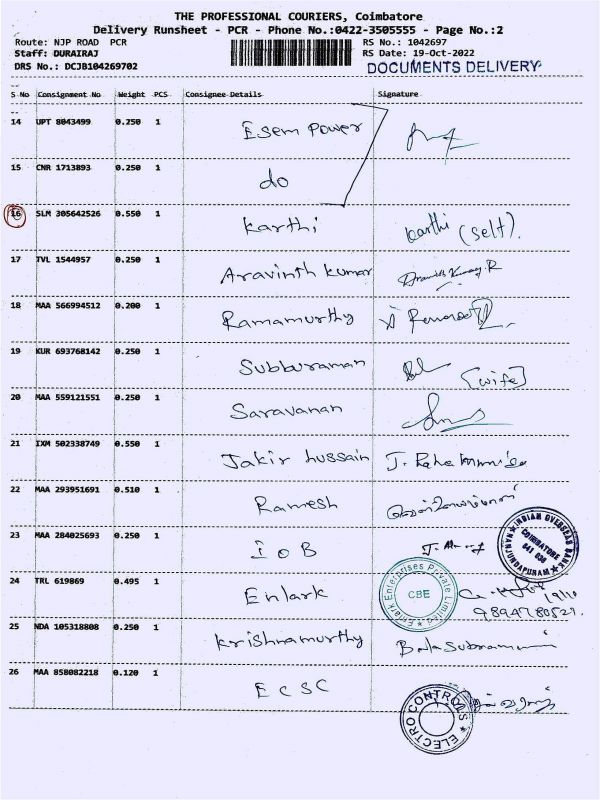 THE PROFESSIONAL COURIERS, Coimbatore
Delivery Runsheet - PCR - Phone No.:0422-3505555 - Page No.:2
Route: NJP ROAD PCR RS No.: 1042697
Staff: DURAIRAJ RS Date: 19-Oct-2022
DRS No.: DCJB104269702 DOCUMENTS DELIVERY
S No Consignment No Weight PCS Consignee Details Signature
14 UPT 8043499 0.250 1 Esem Power
15 CNR 1713893 0.250 1 do
16 SLM 305642526 0.550 1 Karthi Karthi (Self).
17 TVL 1544957 0.250 1 Aravinth Kumar
18 MAA 566994512 0.200 1 Ramamurthy
19 KUR 693768142 0.250 1 Subburaman [wife]
20 MAA 559121551 0.250 1 Saravanan
21 IXM 502338749 0.550 1 Jakir hussain
22 MAA 293951691 0.510 1 Ramesh
23 MAA 284025693 0.250 1 IOB
INDIAN OVERSEAS BANK
COIMBATORE
641 036
NANJUNDAPURAM
24 TRL 619869 0.495 1 Enlark
Enlark Enterprises Private Limited
CBE
25 NDA 105318808 0.250 1 Krishnamurthy
26 MAA 858082218 0.120 1 ECSC
ELECTRO CONTROLS